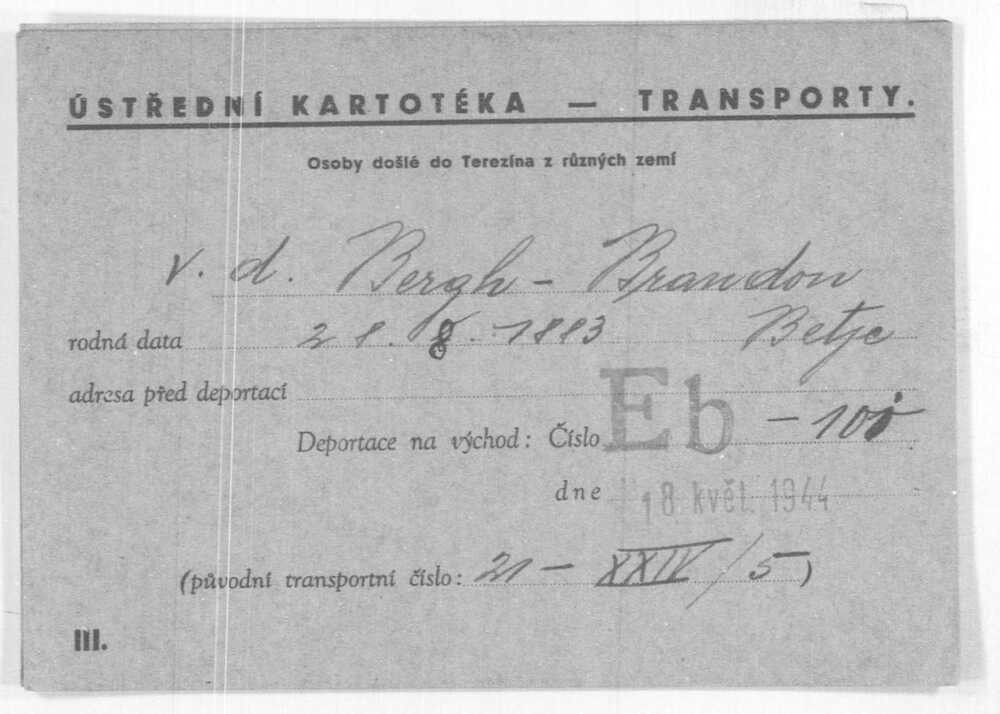 ÚSTŘEDNÍ KARTOTÉKA — TRANSPORTY.
Osoby došlé do Terezína z různých zemí
v. d. Bergh - Brandon
rodná data 28. 8. 1883 Betje
adresa před deportací
Deportace na východ: Číslo Eb -
dne 18 květ. 1944
(původní transportní číslo: 21 - XXIV/5)
III.